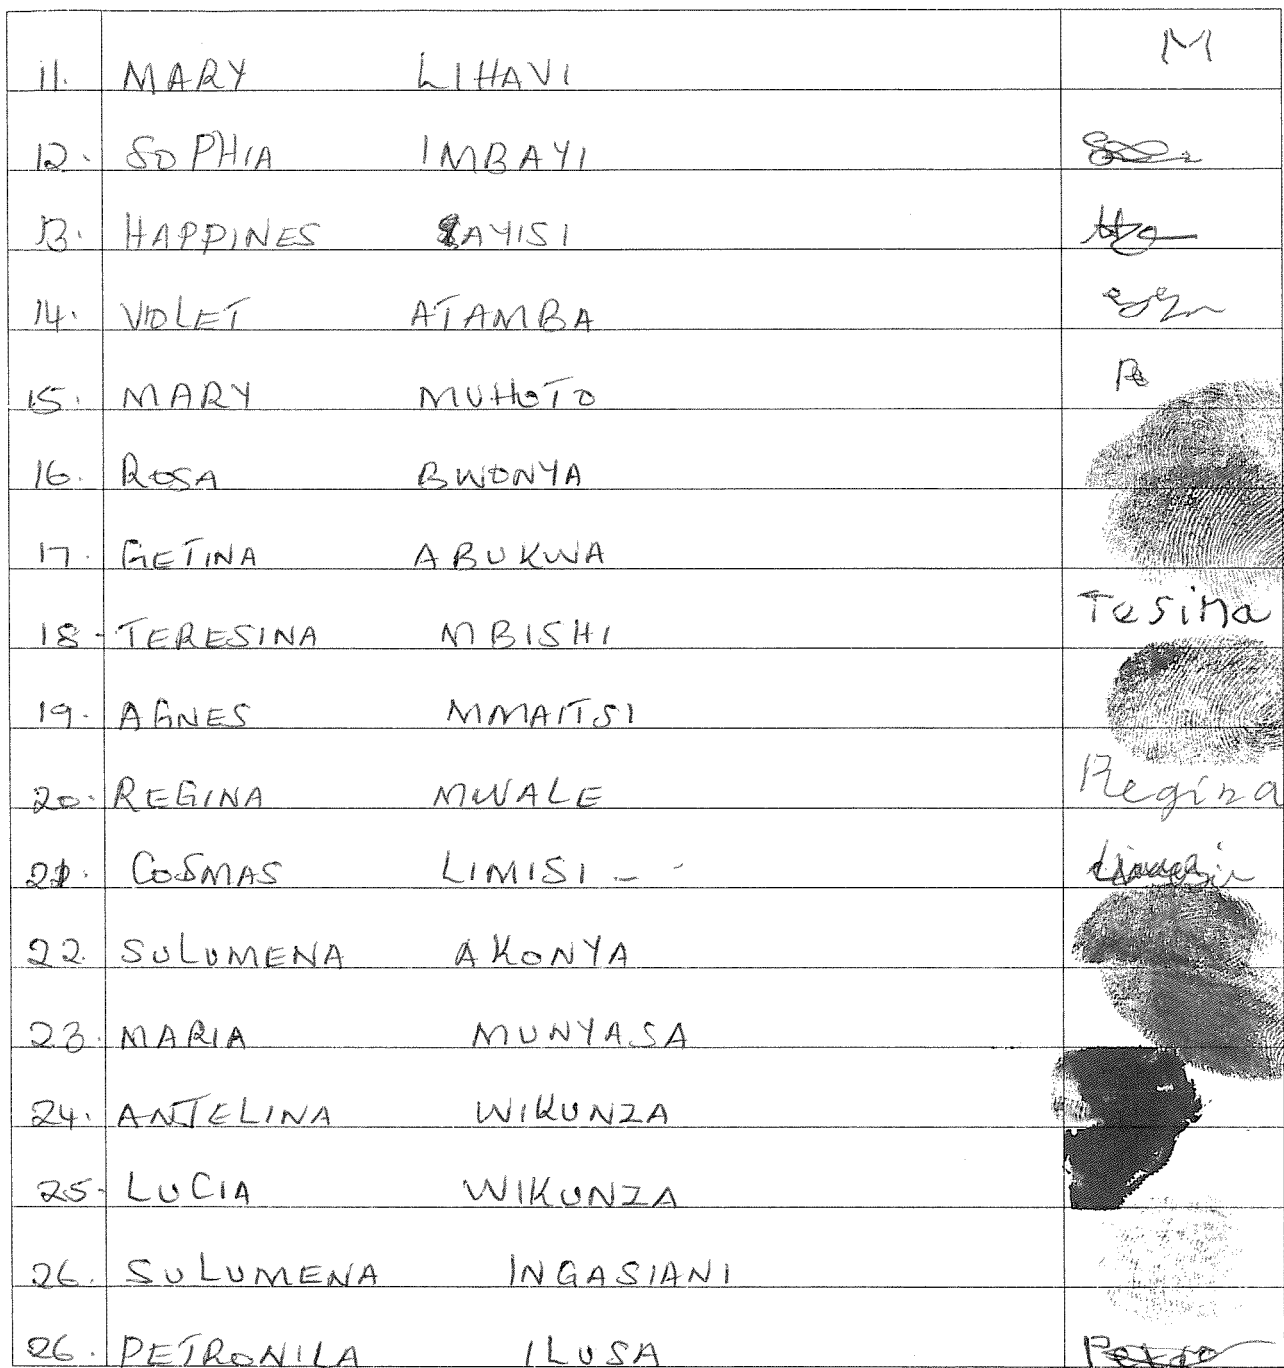 11. MARY LIHAVI M
12. SOPHIA IMBAYI
13. HAPPINES SAYISI
14. VIOLET ATAMBA
15. MARY MUHOTO
16. ROSA BWONYA
17. GETINA ABUKWA
18 - TERESINA MBISHI Tesina
19. AGNES MMAITSI
20. REGINA MWALE Regina
21. COSMAS LIMISI - -
22. SULUMENA AKONYA
23. MARIA MUNYASA
24. ANJELINA WIKUNZA
25- LUCIA WIKUNZA
26. SULUMENA INGASIANI
26. PETRONILA ILUSA